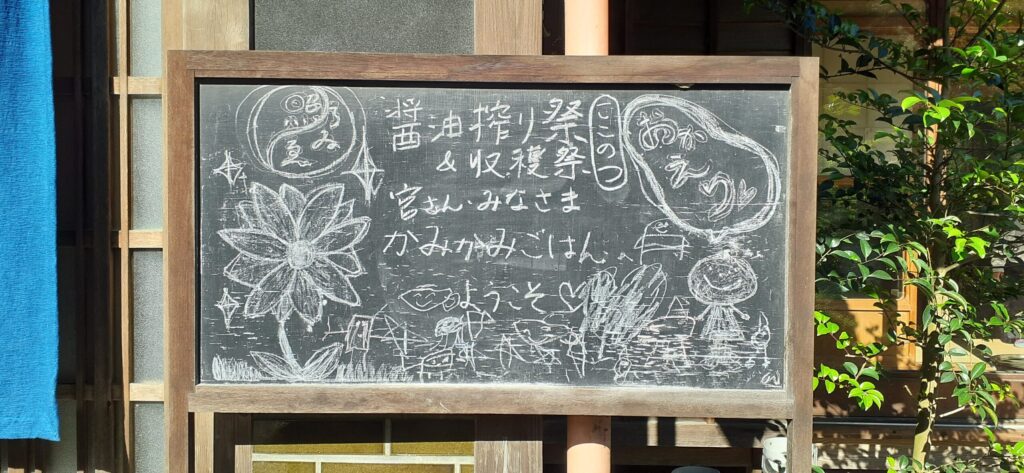 醤油搾り祭
&収穫祭
ここのつ
おかえり
宮さん・みなさま
かみかみごはん へ
ようこそ